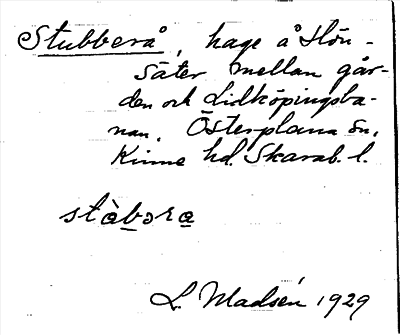 Stubberå, hage å Hön-
säter mellan går-
den och Lidköpingsba-
nan. Österplana sn,
Kinne hd. Skarab. l.
stàbəra
L. Madsén 1929